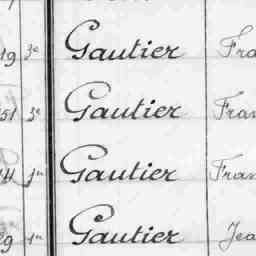 19 3e Gautier Fra
51 3e Gautier Fran
14 1er Gautier Fran
89 1er Gautier Jea